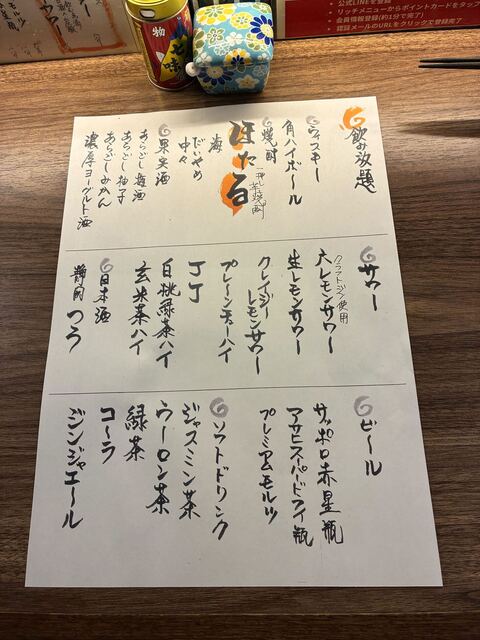 飲み放題
ウィスキー
角ハイボール
焼酎
ほたる
一押し芋焼酎
海
だいやめ
中々
果実酒
あらごし梅酒
あらごし柚子
あらごしみかん
濃厚ヨーグルト酒
サワー
クラフトジン使用
大人レモンサワー
生レモンサワー
クレイジー
レモンサワー
プレーンチューハイ
JJ
白桃緑茶ハイ
玄米茶ハイ
日本酒
ビール
サッポロ赤星瓶
アサヒスーパードライ瓶
プレミアムモルツ
ソフトドリンク
ジャスミン茶
ウーロン茶
緑茶
コーラ
ジンジャエール
物
七味
公式LINEを登録
リッチメニューからポイントカードをタップ
会員情報登録(約1分で完了)
認証メールのURLをクリックで登録完了